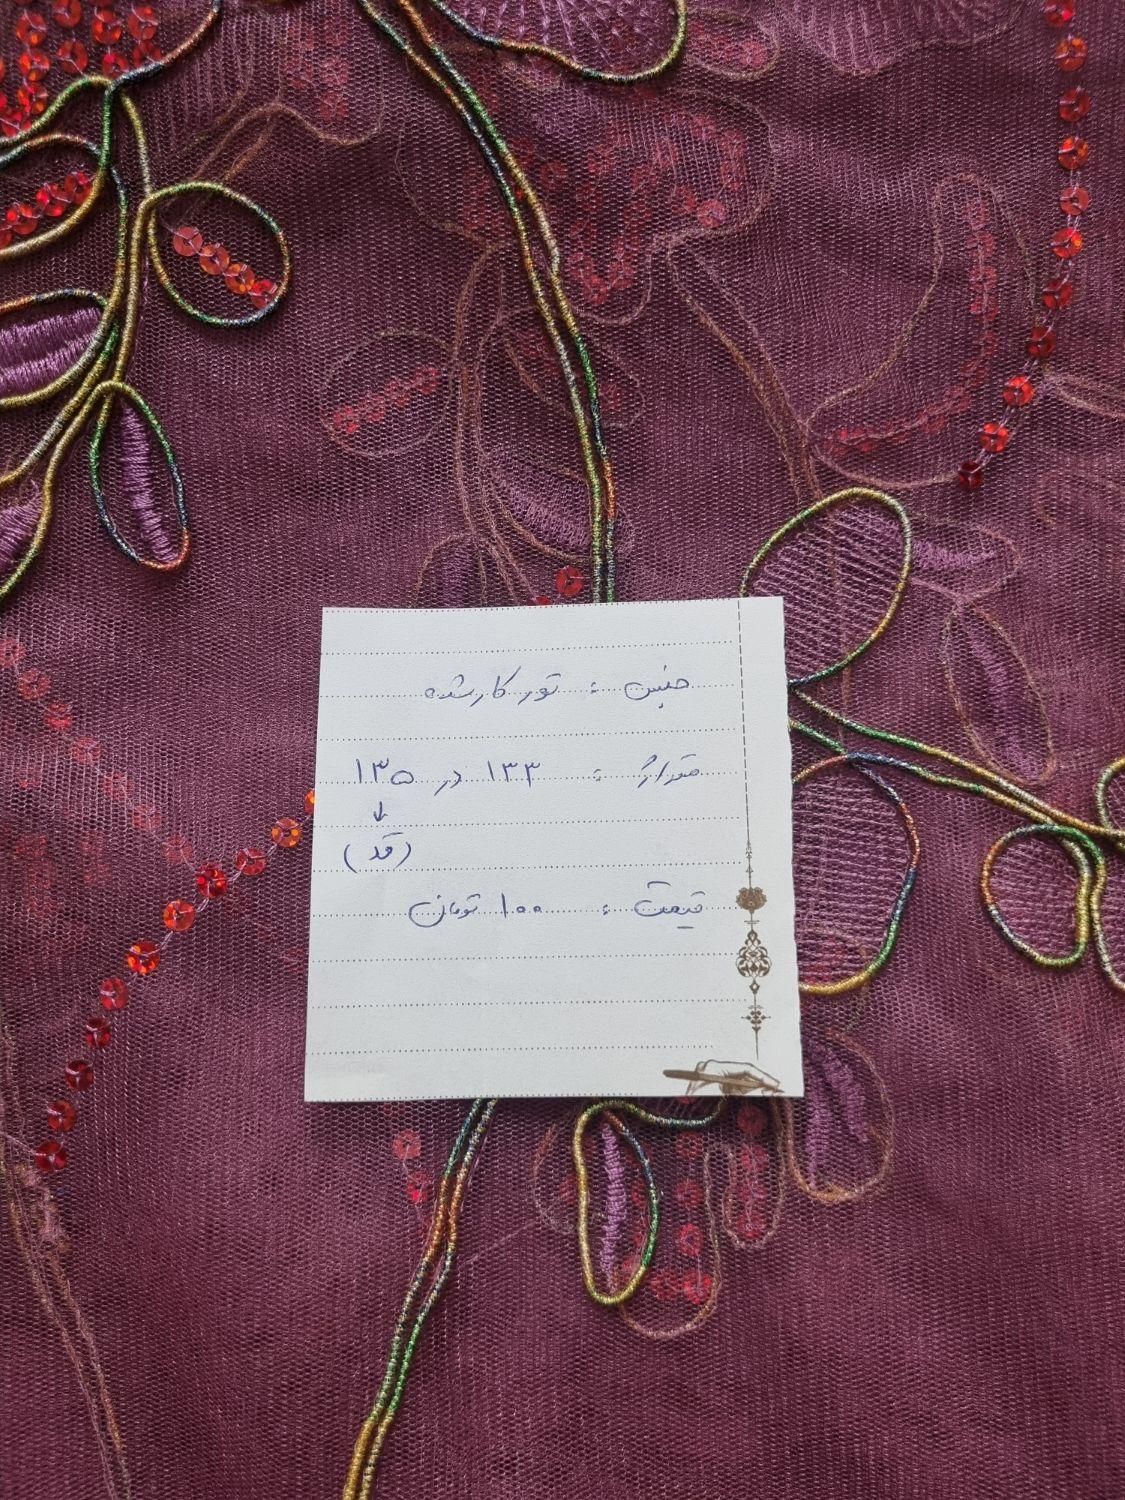 جنس : تور کار شده
مقدار : ۱۳۳ در ۱۳۵
(قد)
قیمت : ۱۰۰ تومان